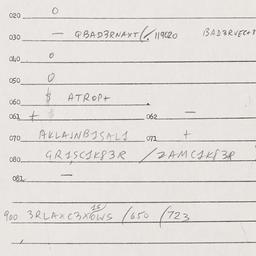 020 0
030 — QBAD3RNAXT(/. 119C20 BAD3RVEC+8
040 0
050 0
060 $ ATROP+
061 + 062 —
070 AKLAJNB1SAL1 071 +
080 GR1SC1K83R /2AMC1K83R
081 —
900 3RLAXC3X6WS 15 /650 (723